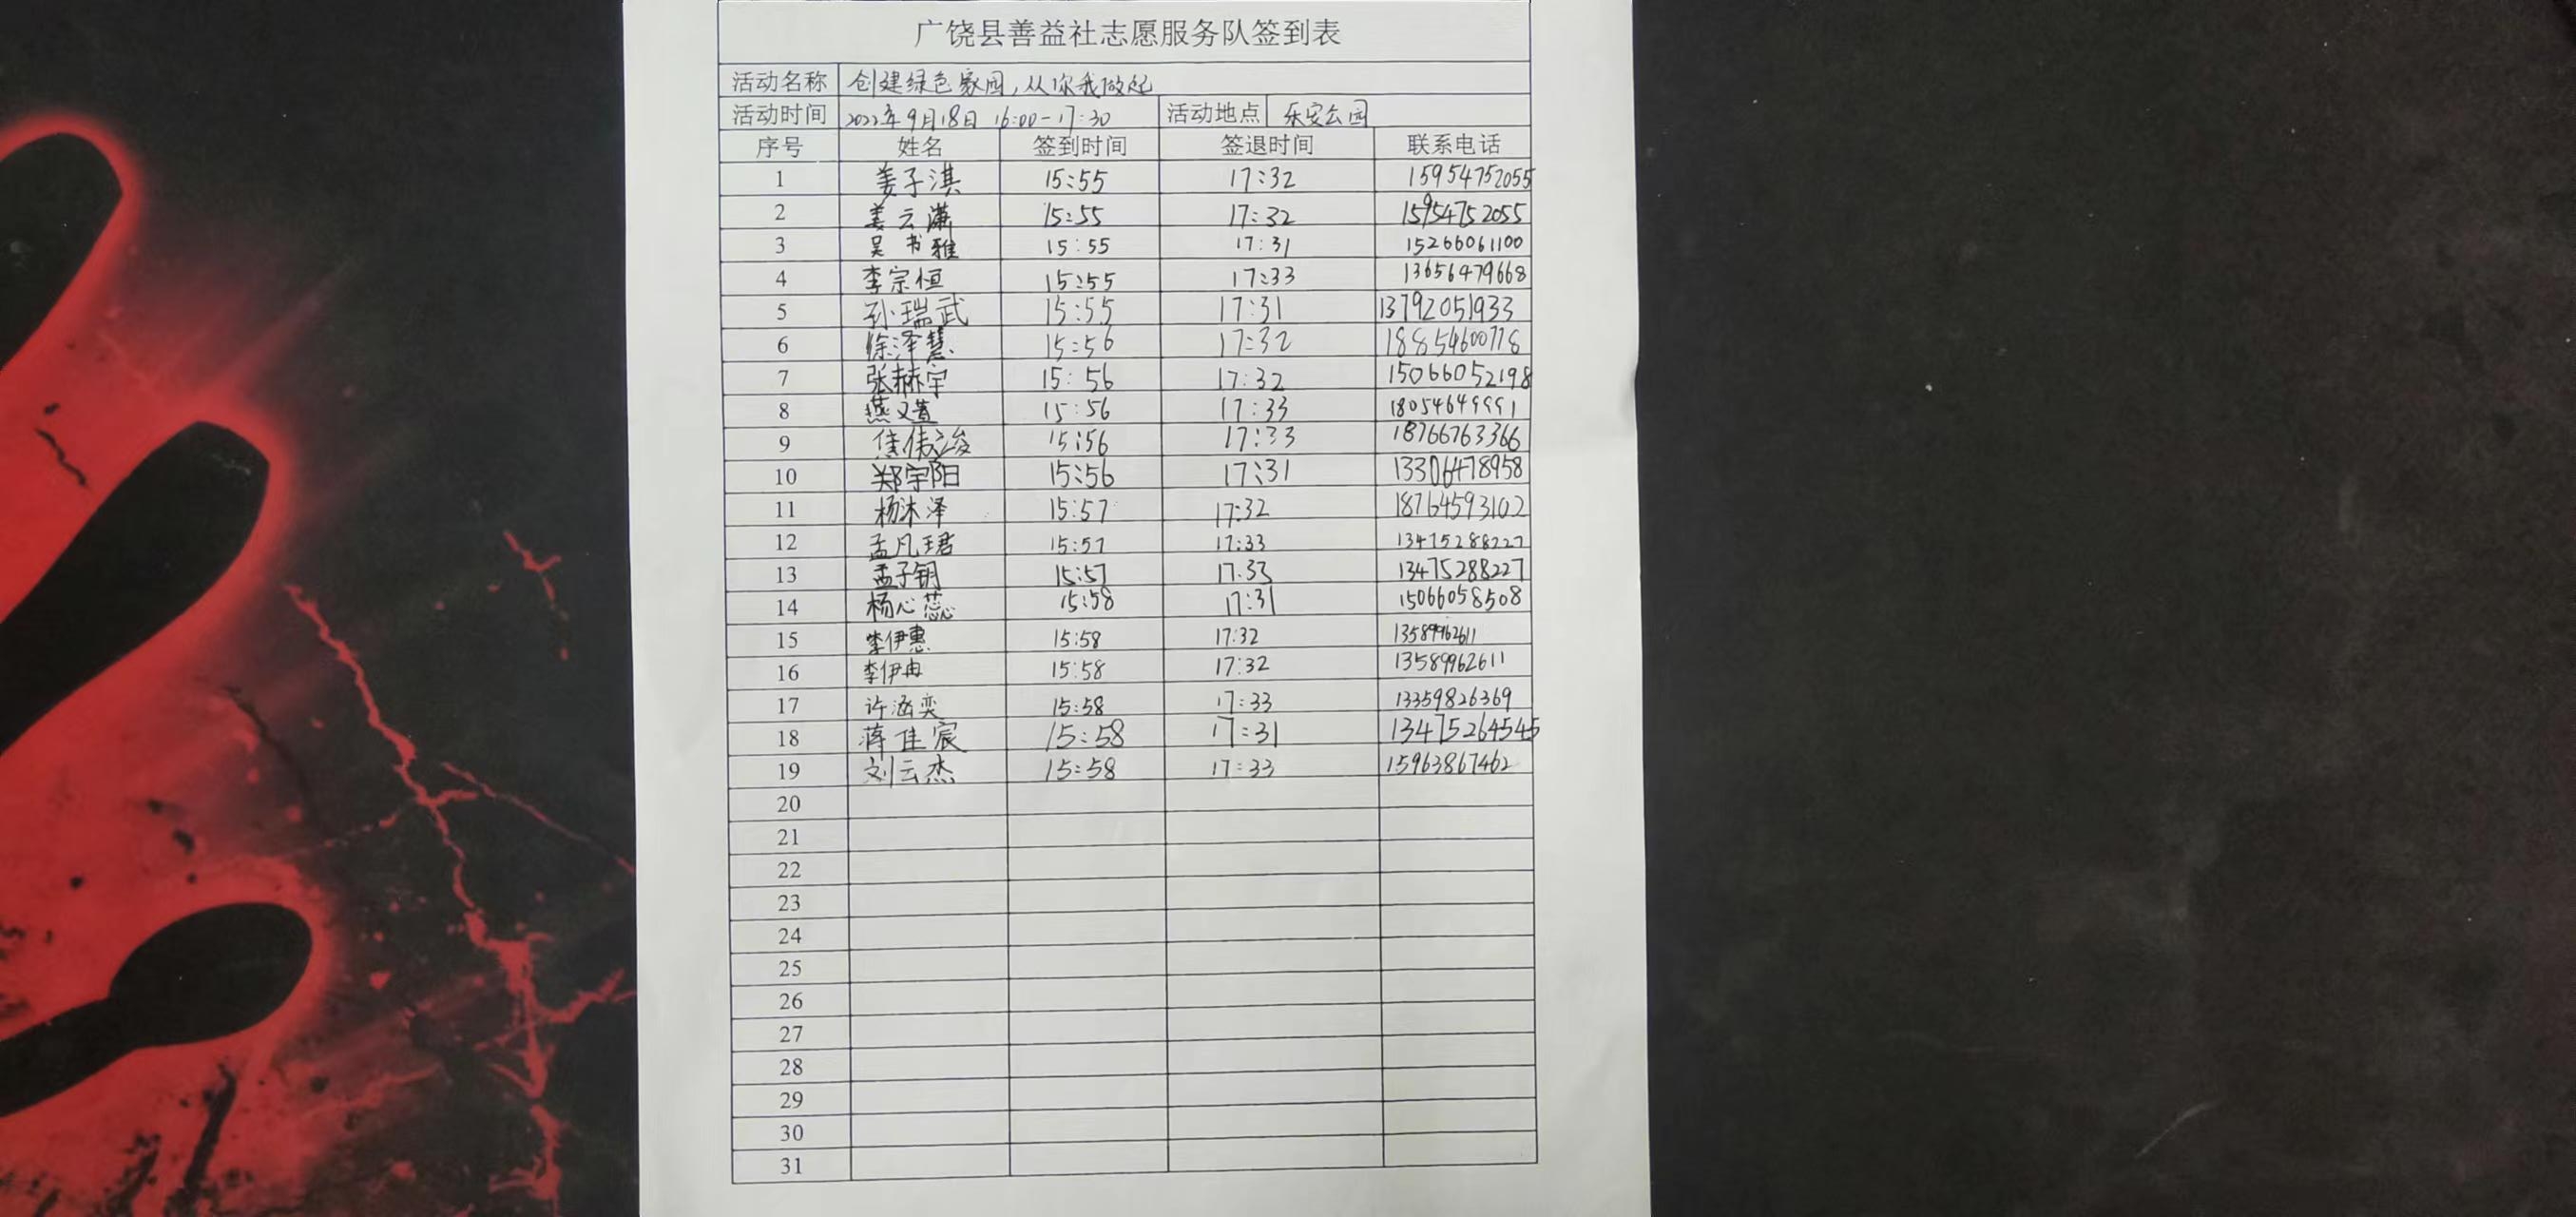 广饶县善益社志愿服务队签到表
活动名称 创建绿色家园,从你我做起
活动时间 2022年9月18日 16:00-17:30 活动地点 乐安公园
序号 姓名 签到时间 签退时间 联系电话
1 姜子淇 15:55 17:32 15954752055
2 姜云潇 15:55 17:32 15954752055
3 吴书雅 15:55 17:31 15266061100
4 李宗恒 15:55 17:33 13656479668
5 孙瑞武 15:55 17:31 13792051933
6 徐泽慧 15:56 17:32 18854600778
7 张赫宇 15:56 17:32 15066052198
8 燕 15:56 17:33
9 15:56 17:33 18766763366
10 郑宇阳 15:56 17:31 13306478958
11 杨沐泽 15:57 17:32 18764593102
12 孟凡珺 15:57 17:33 13475288227
13 孟子钥 15:57 17:33 13475288227
14 杨心蕊 15:58 17:31 15066058508
15 李伊惠 15:58 17:32 13589962611
16 李伊冉 15:58 17:32 13589962611
17 许涵奕 15:58 17:33 13359826369
18 蒋佳宸 15:58 17:31 13475264545
19 刘云杰 15:58 17:33 15963867462
20
21
22
23
24
25
26
27
28
29
30
31